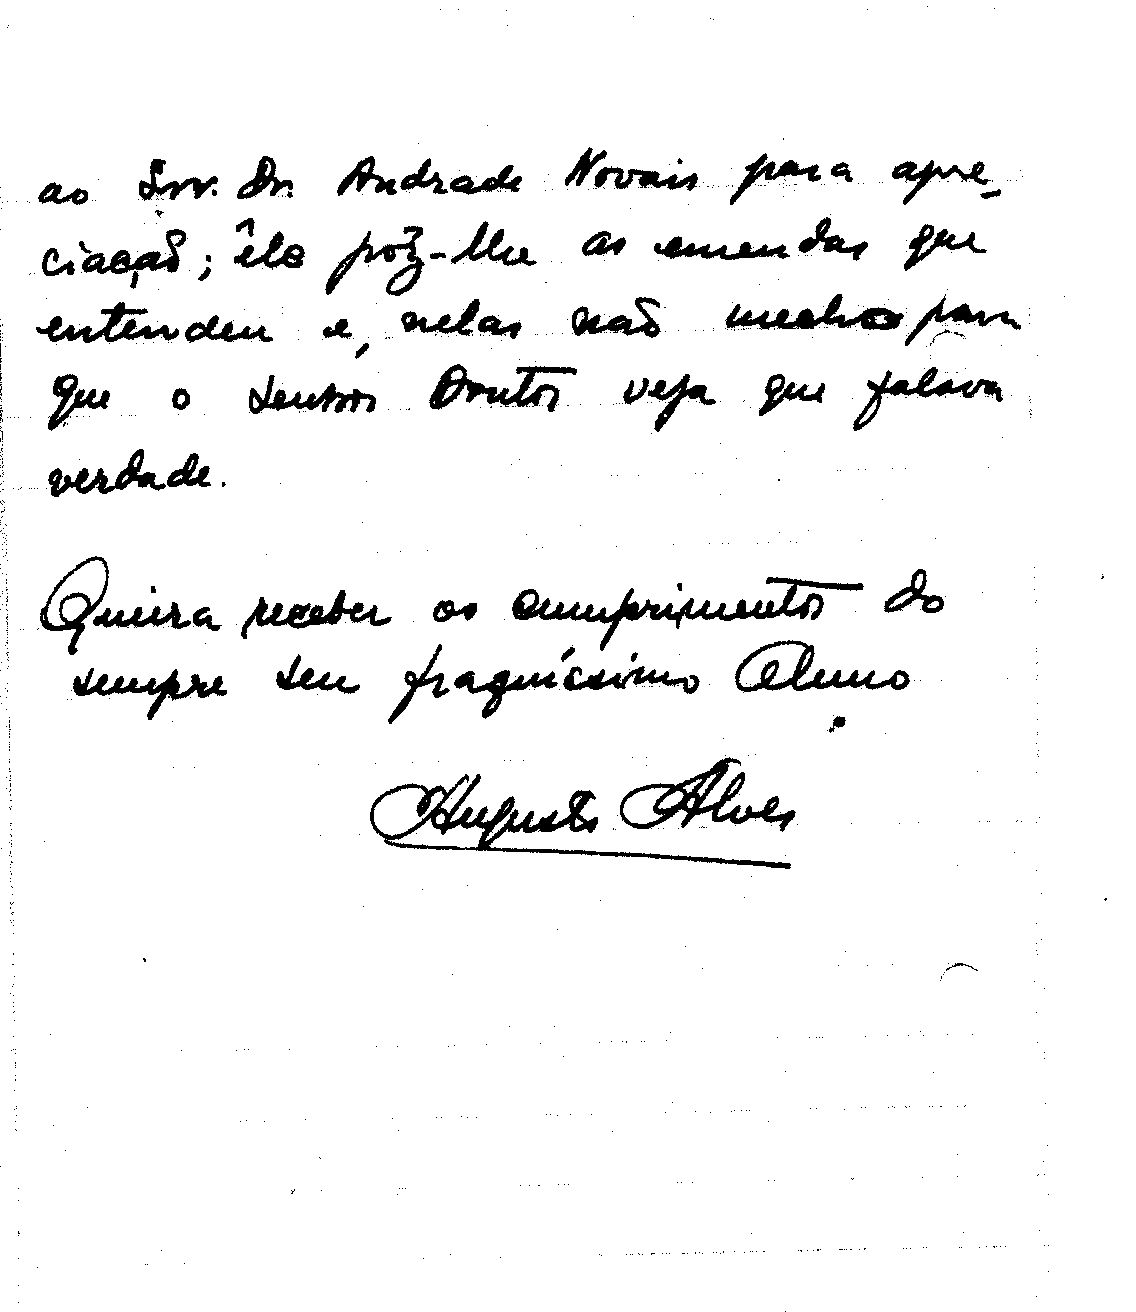 ao Snr. Dr. Andrade Novais para apre_
ciação; êle pôz-lhe as emendas que
entendeu e, nelas não mecho para
que o Senhor Doutor veja que falava
verdade.
Queira receber os cumprimentos do
sempre seu fraquíssimo Aluno
Augusto Alves